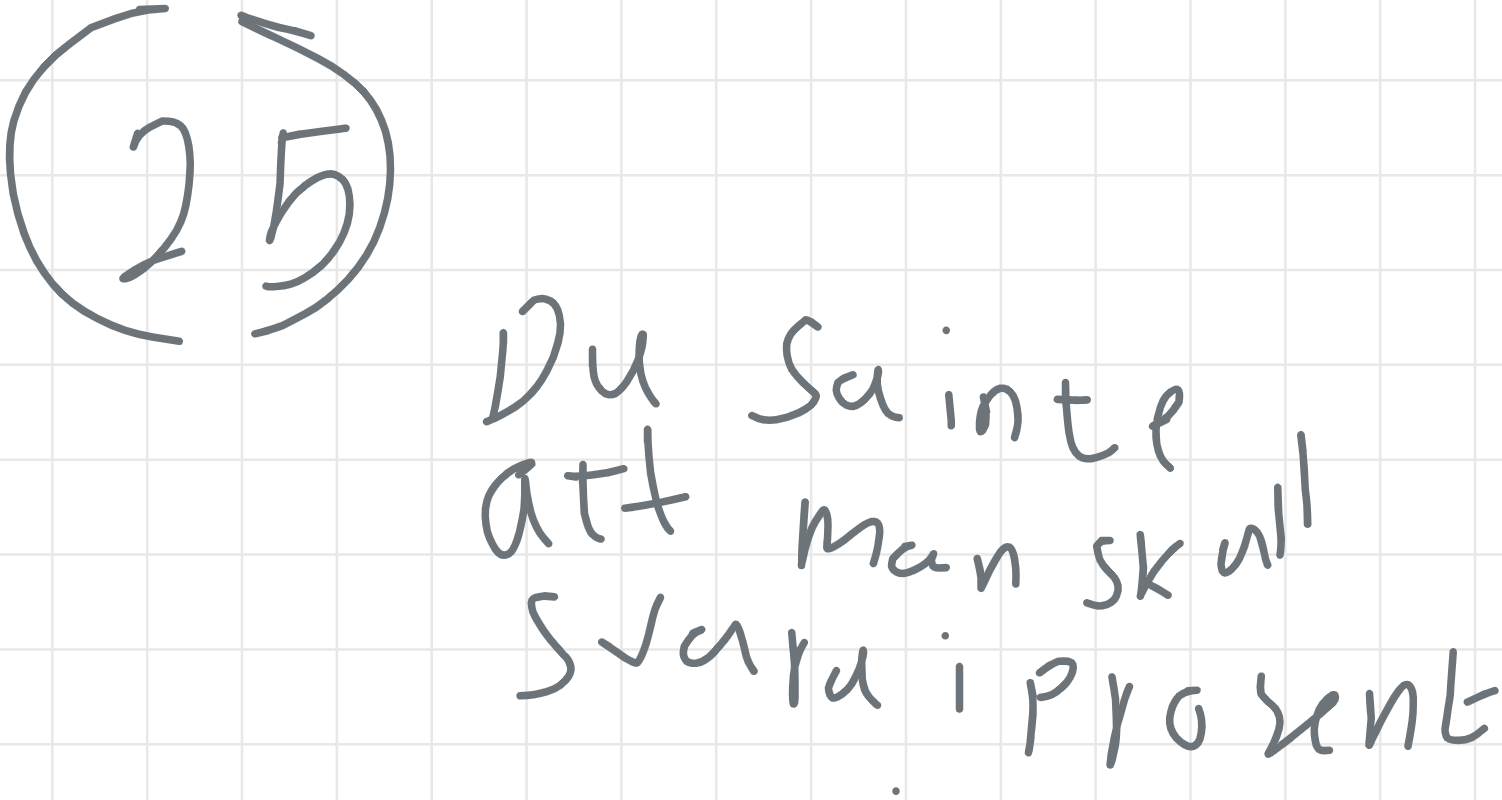 25
Du Sa inte
att man skull
Svara i prosent